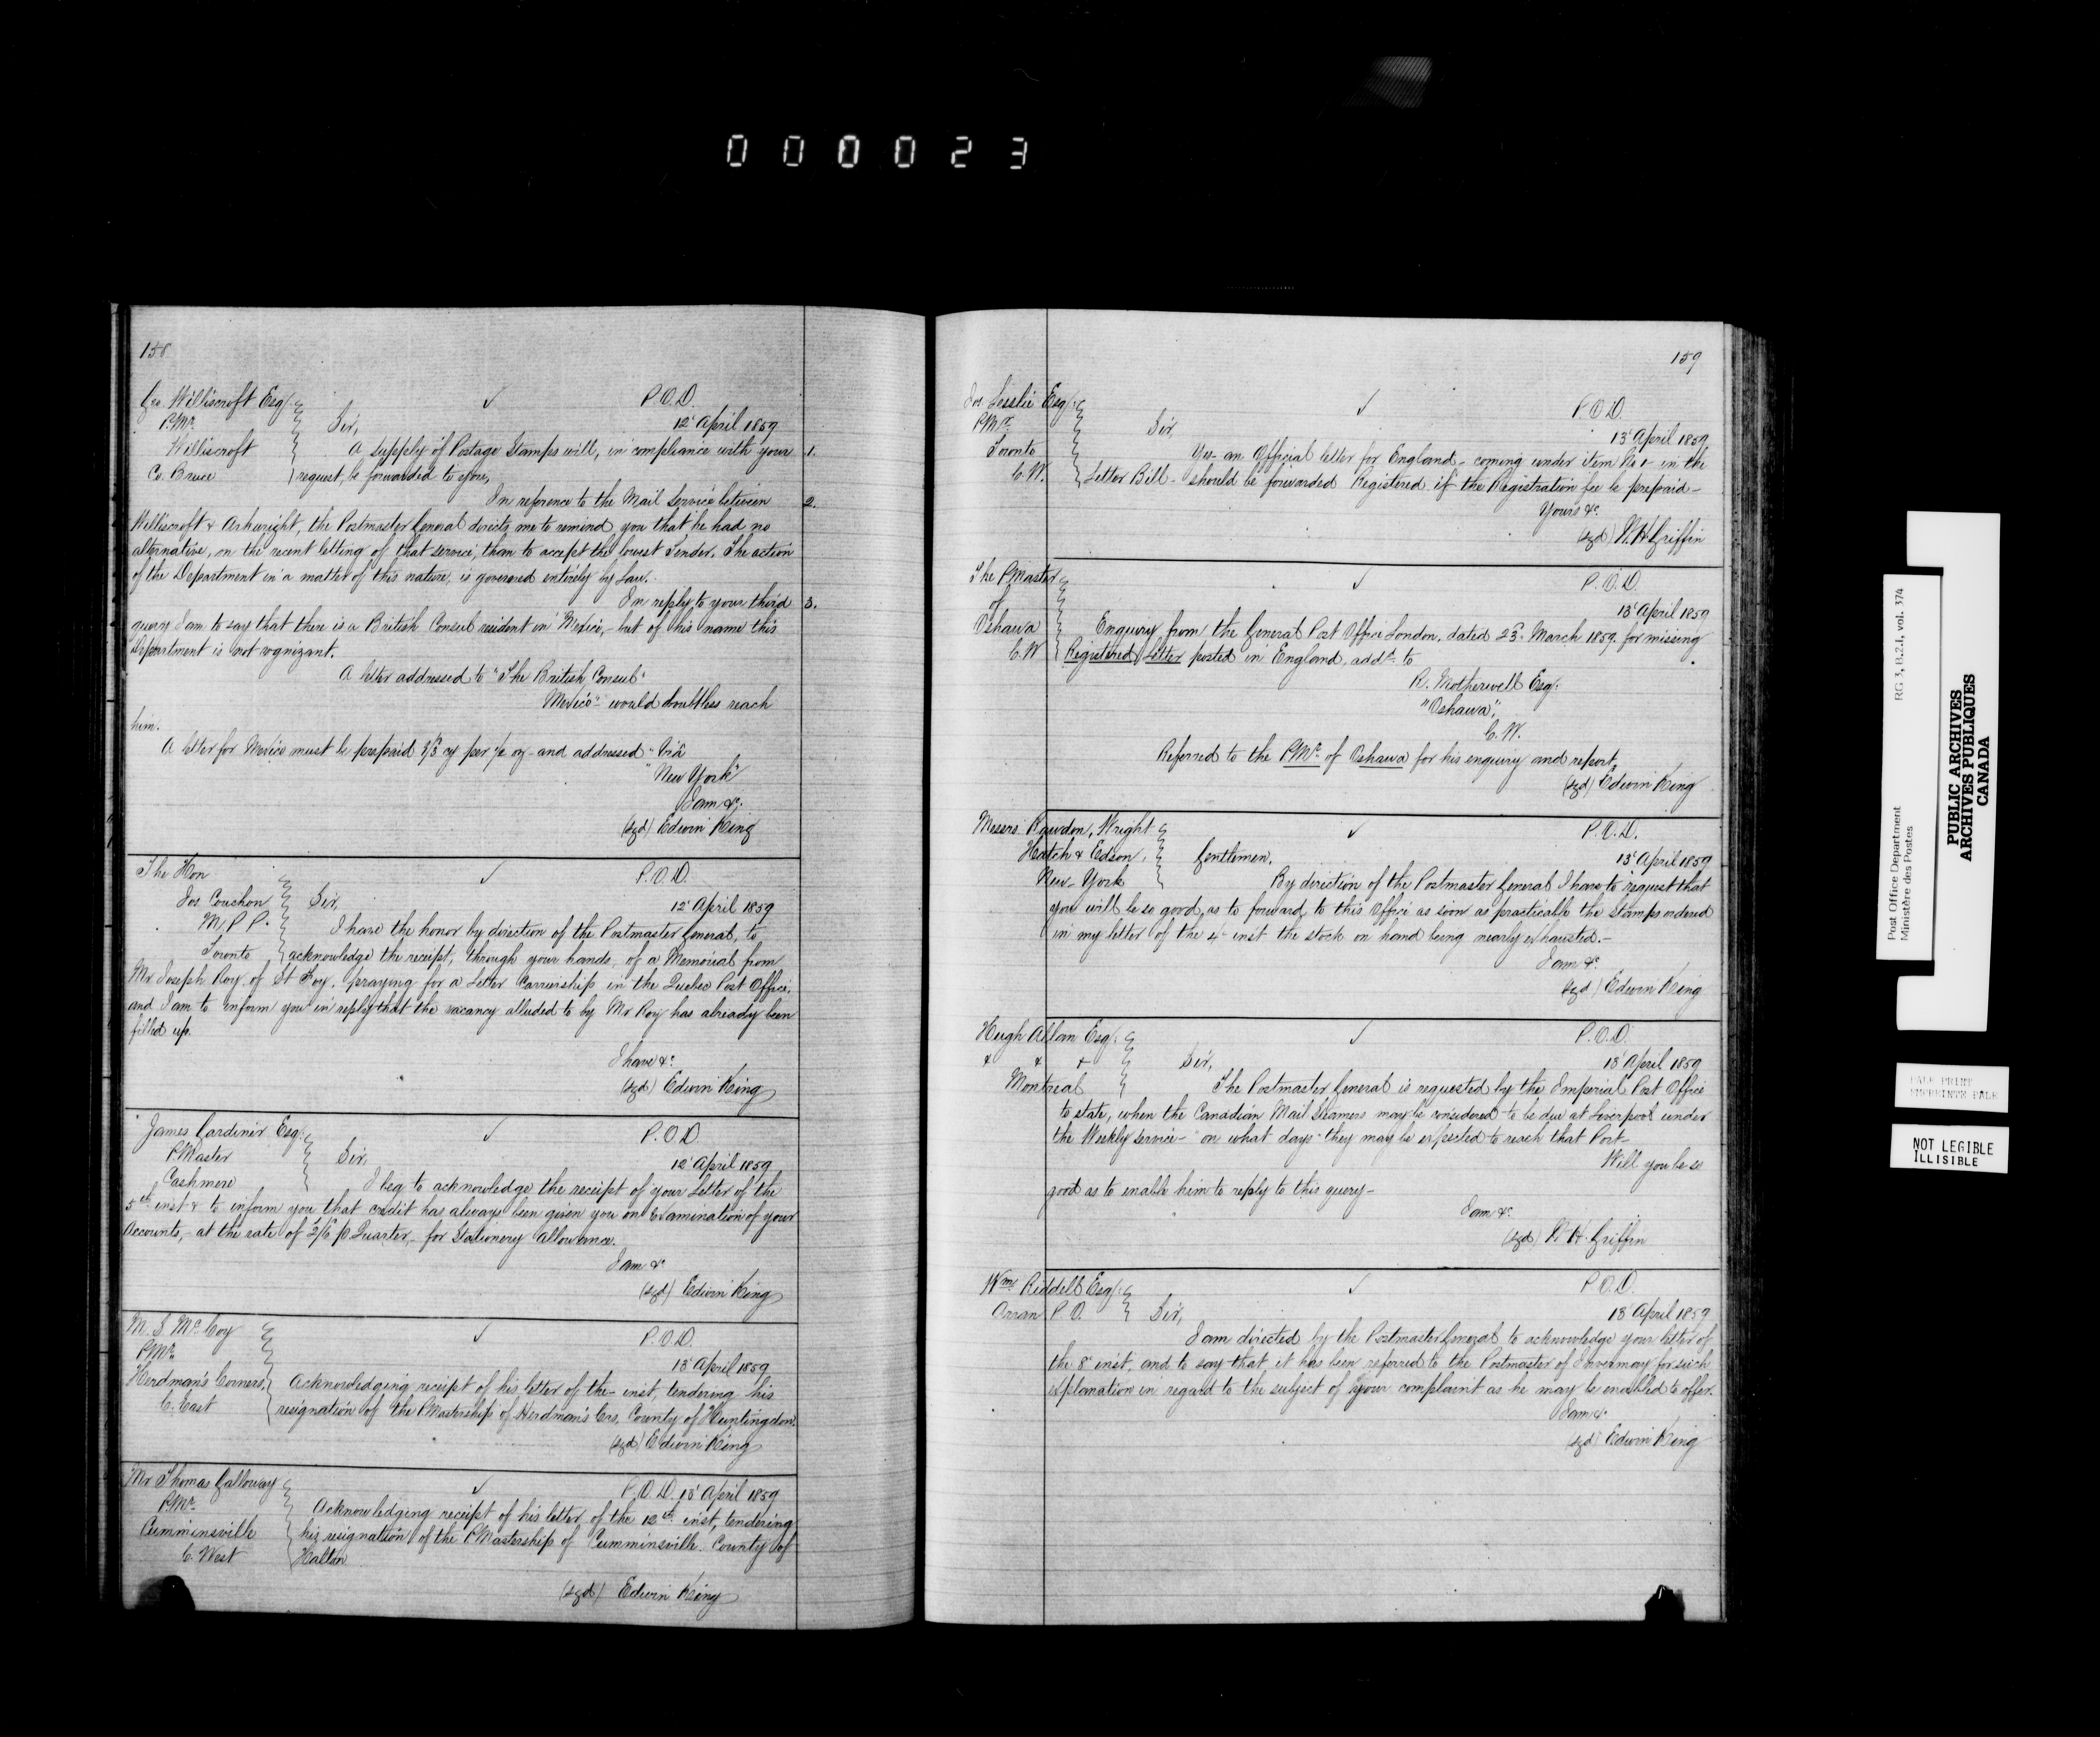 000023
158
Geo. Williscroft Esq. ✓ P.O.D.
PMr. Sir, 12 April 1859
Williscroft A supply of Postage Stamps will, in compliance with your 1.
Co. Bruce request, be forwarded to you,
In reference to the Mail Service between 2.
Williscroft & Arkwright, the Postmaster General directs me to remind you that he had no
alternative, on the recent letting of that service, than to accept the lowest Tender. The action
of the Department in a matter of this nature, is governed entirely by Law.
In reply to your third 3.
query I am to say that there is a British Consul resident in Mexico, - but of his name this
Department is not cognizant.
A letter addressed to "The British Consul"
Mexico" would doubtless reach
him.
A letter for Mexico must be prepaid cy per ½ oz - and addressed "Via
"New York"
I am &c.
(sgd) Edwin King
The Hon ✓ P.O.D.
Jos. Couchon Sir, 12 April 1859
M.P.P. I have the honor by direction of the Postmaster General, to
Toronto acknowledge the receipt, through your hands, of a Memorial from
Mr Joseph Roy of St Foy, praying for a Letter Carriership in the Quebec Post Office,
and I am to inform you in reply that the vacancy alluded to by Mr Roy has already been
filled up.
I have &c
(sgd) Edwin King
James Gardiner Esq. ✓ P.O.D.
PMaster Sir, 12 April 1859
Cashmere I beg to acknowledge the receipt of your Letter of the
5th inst & to inform you that credit has always been given you on Examination of your
Accounts, - at the rate of 2/6 p Quarter, - for Stationery Allowance.
I am &c
(sgd) Edwin King
M. S. McCoy ✓ P.O.D.
PMr. 13 April 1859
Herdman's Corners, Acknowledging receipt of his letter of the - inst, tendering his
C. East resignation of the PMastership of Herdman's Crs. County of Huntingdon.
(sgd) Edwin King
Mr Thomas Galloway ✓ P.O.D. 13 April 1859
PMr. Acknowledging receipt of his letter of the 12th inst, tendering
Cumminsville his resignation of the PMastership of Cumminsville. County of
C. West Halton
(sgd) Edwin King
159
Jos. Lesslie Esq. ✓ P.O.D.
PMr. Sir, 13 April 1859
Toronto Yes - an Official letter for England - coming under item No in the
C.W. Letter Bill - should be forwarded Registered if the Registration fee be prepaid -
Yours &c.
(sgd) W.H. Griffin
The PMaster ✓ P.O.D.
of 13 April 1859
Oshawa Enquiry from the General Post Office London, dated 23d March 1859 for missing
C.W Registered Letter posted in England, addd. to
R. Motherwell Esq.
"Oshawa",
C.W.
Referred to the PMr. of Oshawa for his enquiry and report,
(sgd) Edwin King
Messrs. Rawdon, Wright ✓ P.O.D.
Hatch & Edson, Gentlemen, 13 April 1859
New-York By direction of the Postmaster General I have to request that
you will be so good, as to forward to this Office as soon as practicable the stamps ordered
in my letter of the 4 inst the stock on hand being nearly exhausted. -
I am &c.
(sgd) Edwin King
Hugh Allan Esq. ✓ P.O.D.
& & & Sir, 13 April 1859
Montreal The Postmaster General is requested by the Imperial Post Office
to state, when the Canadian Mail Steamers may be considered to be due at Liverpool under
the Weekly service - "on what days" they may be expected to reach that Port -
Will you be so
good as to enable him to reply to this query -
I am &c.
(sgd) W.H. Griffin
Wm. Riddell Esq. ✓ P.O.D.
Arran P.O. Sir, 13 April 1859
I am directed by the Postmaster General to acknowledge your letter of
the 8 inst. and to say that it has been referred to the Postmaster of Invermay for such
explanation in regard to the subject of your complaint as he may be enabled to offer.
I am &c
(sgd) Edwin King
Post Office Department RG 3, B.2.I, vol. 374
Ministère des Postes
PUBLIC ARCHIVES
ARCHIVES PUBLIQUES
CANADA
PALE PRINT
EMPREINTE PALE
NOT LEGIBLE
ILLISIBLE